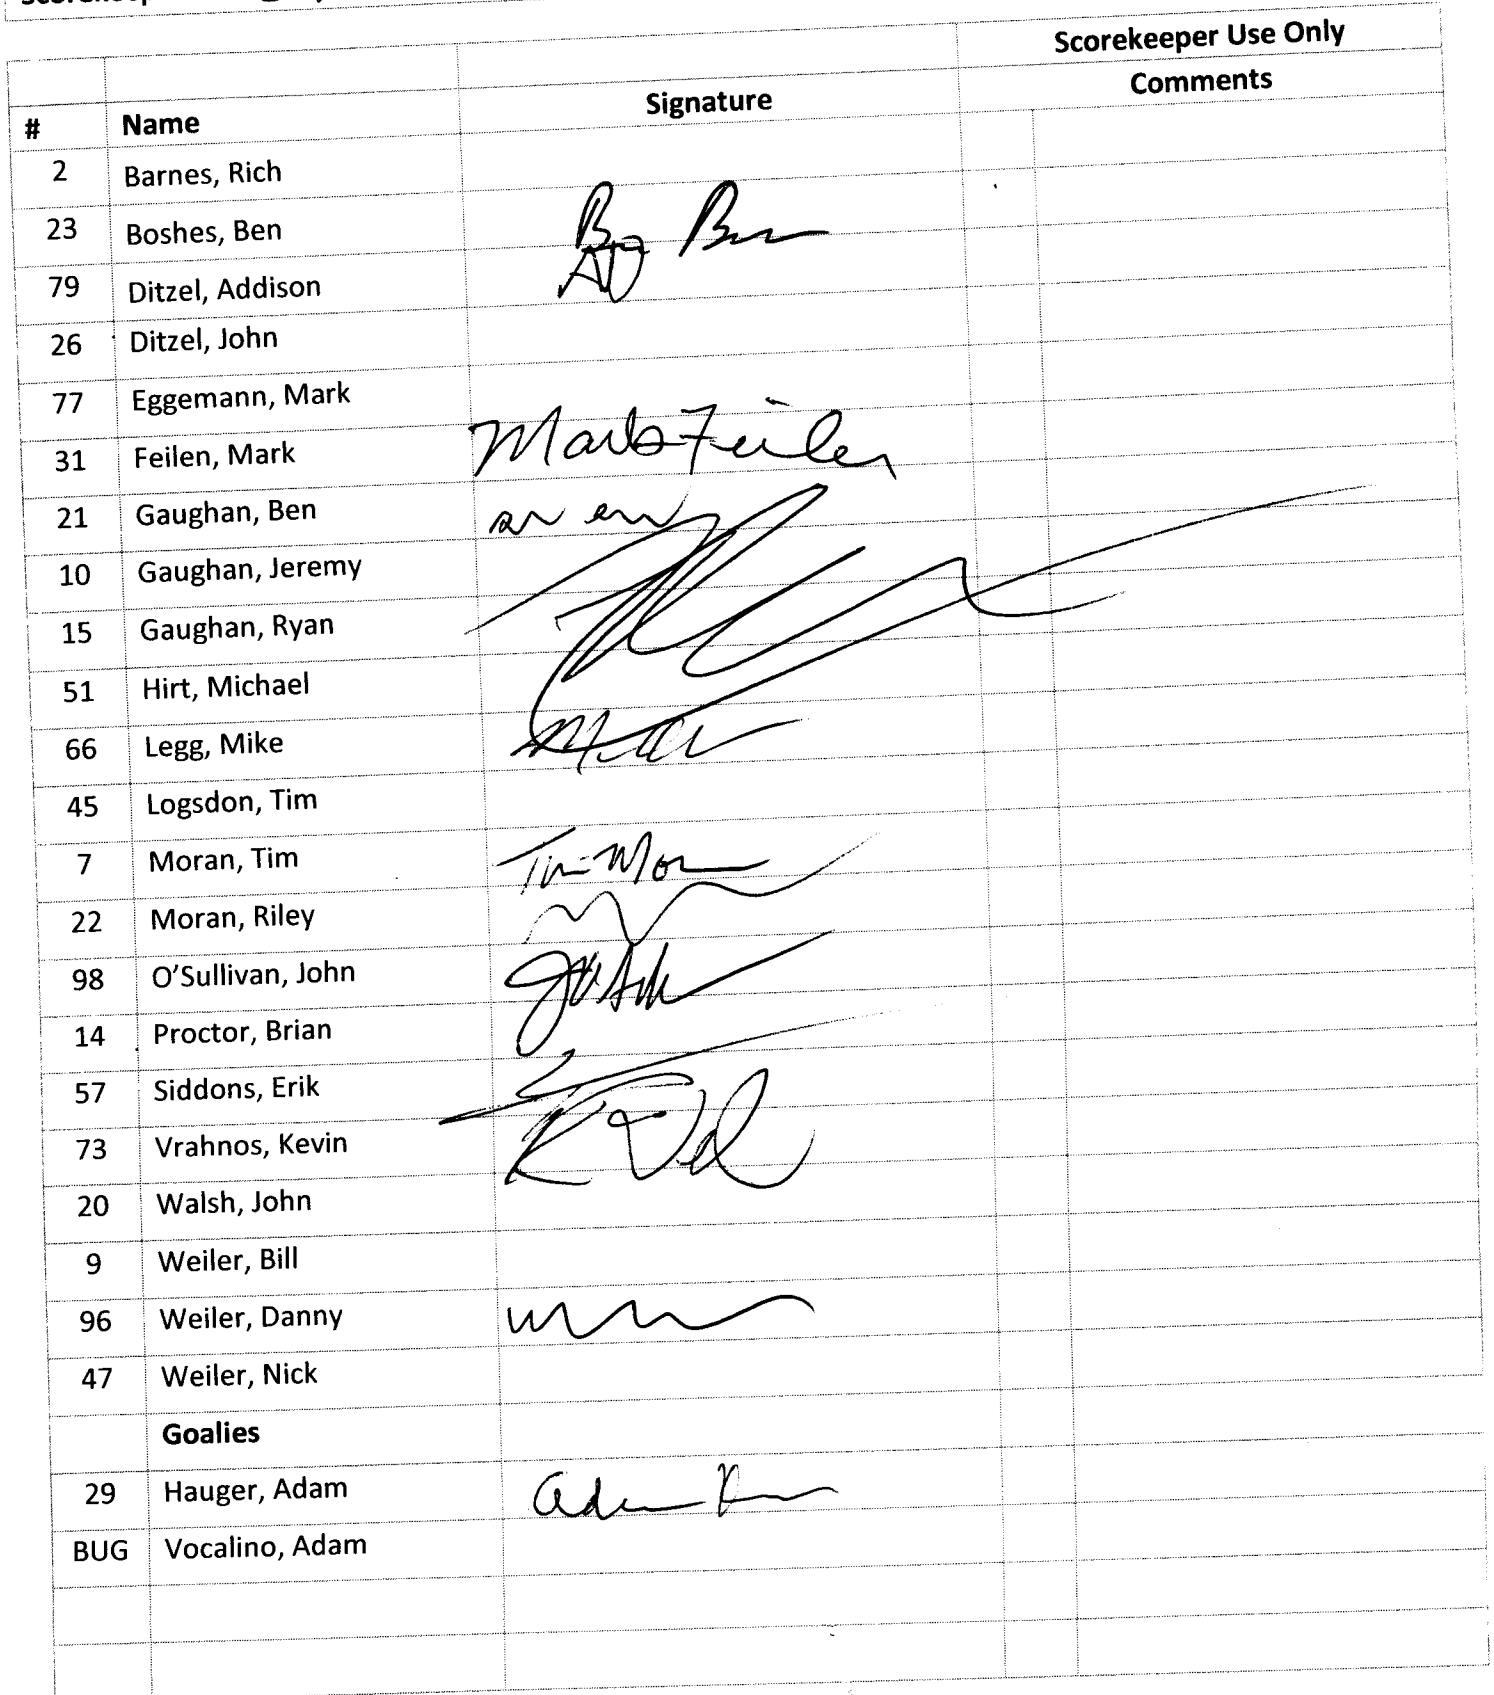 Scorekeeper Use Only
Signature Comments
# Name
2 Barnes, Rich
23 Boshes, Ben
79 Ditzel, Addison
26 Ditzel, John
77 Eggemann, Mark
31 Feilen, Mark Mark Feilen
21 Gaughan, Ben
10 Gaughan, Jeremy
15 Gaughan, Ryan
51 Hirt, Michael
66 Legg, Mike
45 Logsdon, Tim
7 Moran, Tim Tim
22 Moran, Riley
98 O'Sullivan, John
14 Proctor, Brian
57 Siddons, Erik
73 Vrahnos, Kevin
20 Walsh, John
9 Weiler, Bill
96 Weiler, Danny
47 Weiler, Nick
Goalies
29 Hauger, Adam Adam
BUG Vocalino, Adam